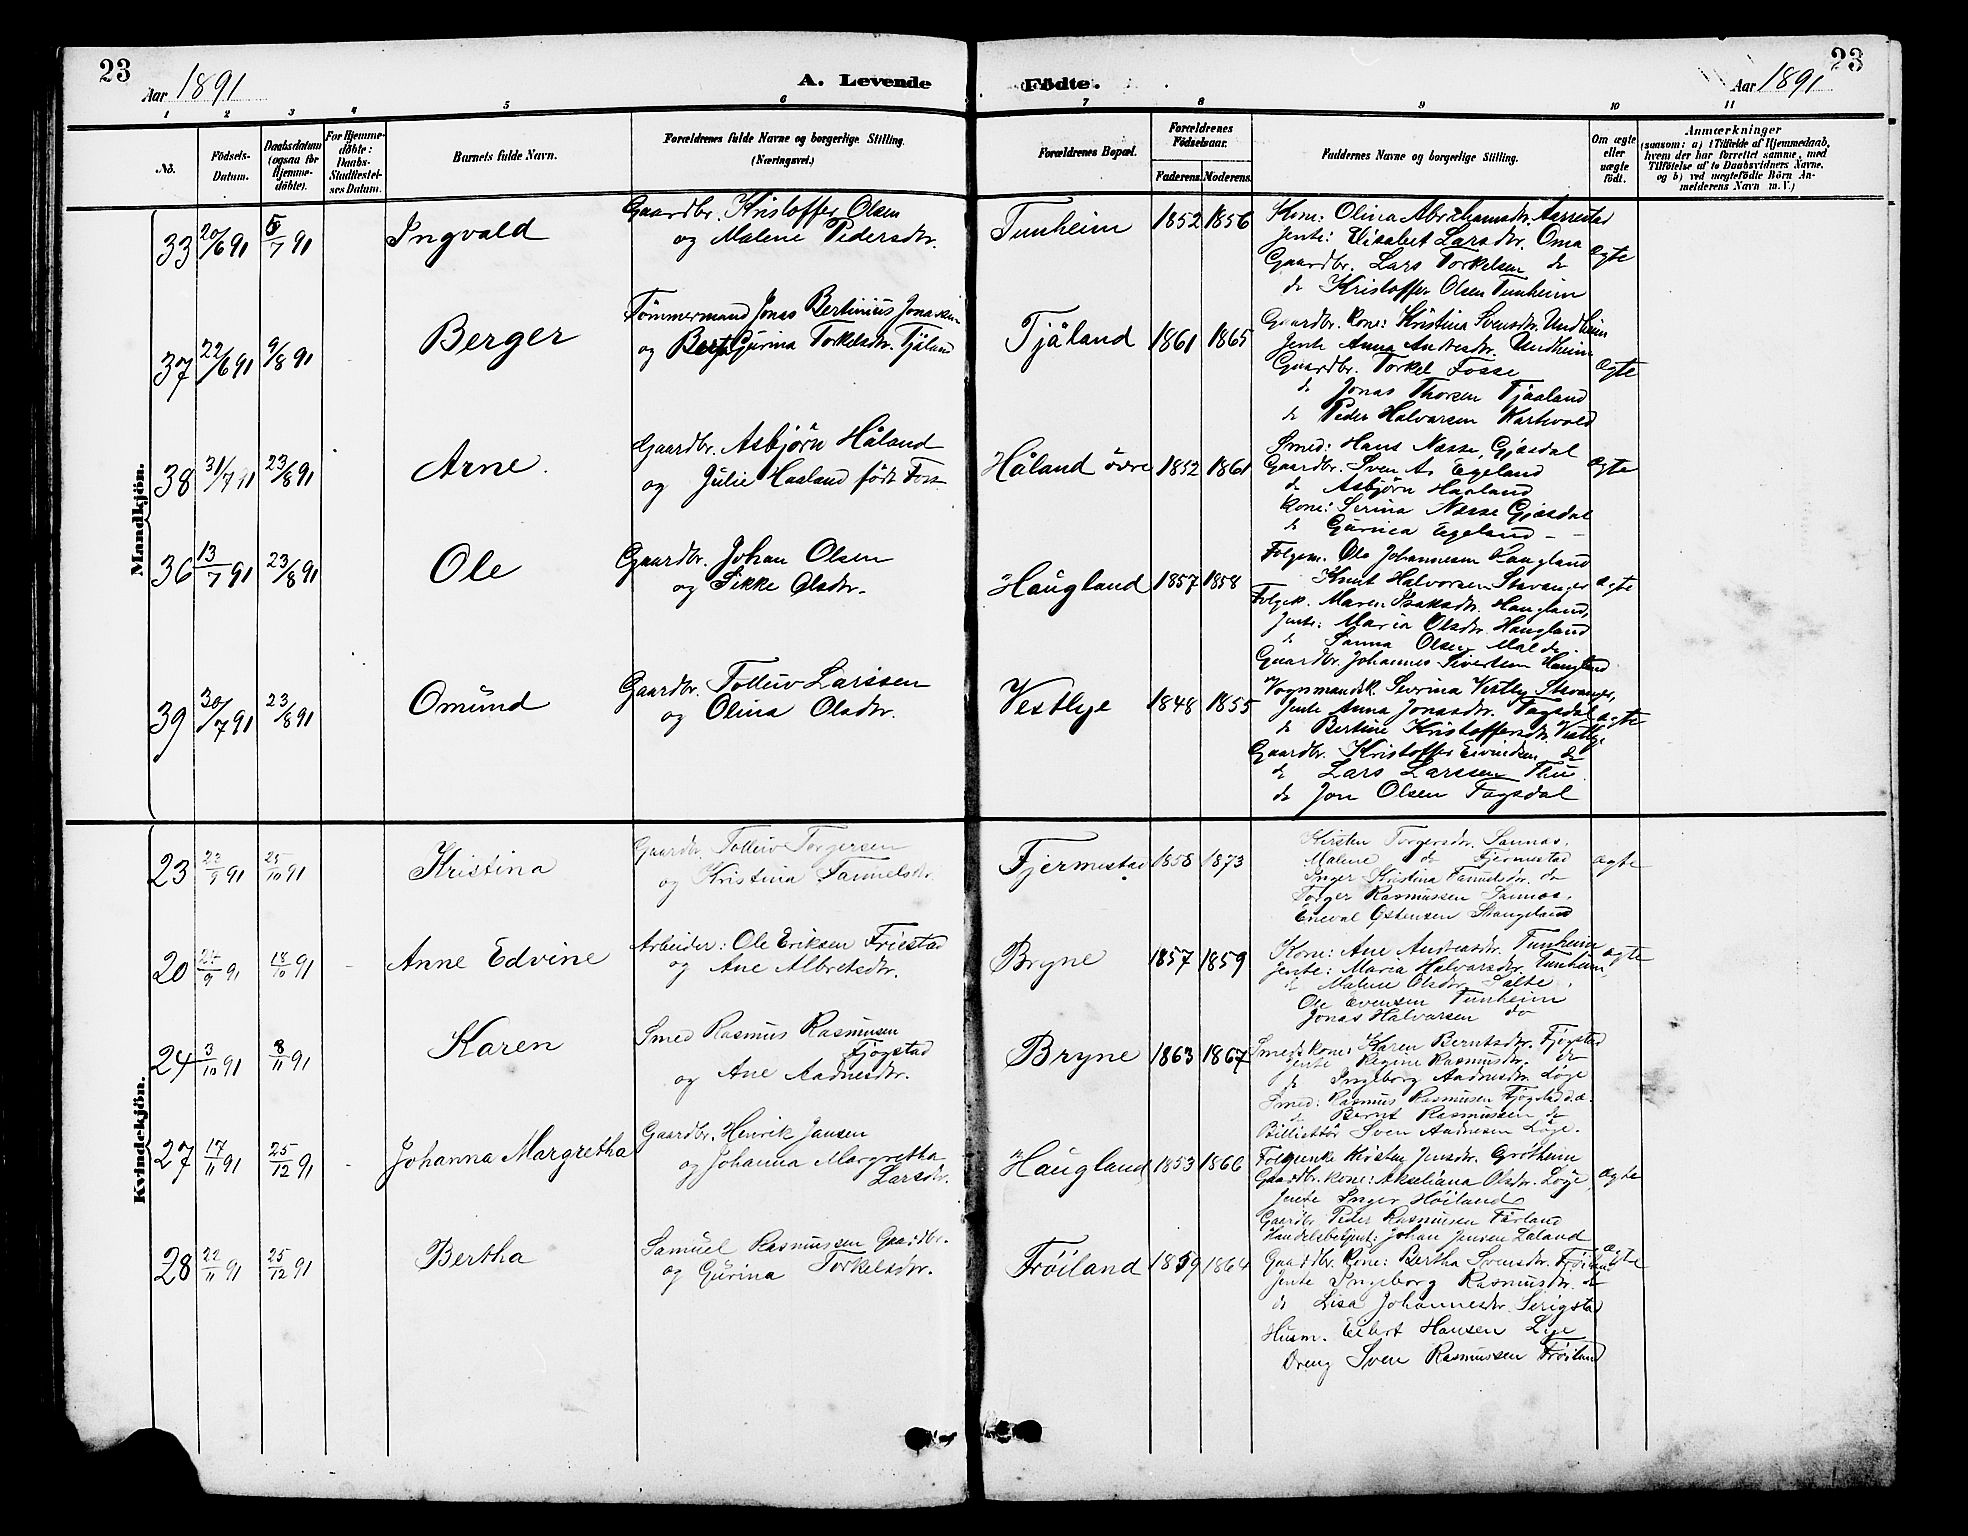 23
Aar 1891
A. Levende
Födte.
23
Aar 1891
1 2 3 4 5 6 7 8 9 10 11
No.
Födsels-
Datum.
Daabsdatum
(ogsaa for
Hjemme-
döbte).
For Hjemme-
döbte:
Daabs-
Stadfæstel-
ses Datum.
Barnets fulde Navn.
Forældrenes fulde Navne og borgerlige Stilling.
(Næringsvei.)
Forældrenes Bopæl.
Forældrenes
Födselsaar.
Faderens. Moderens.
Faddernes Navne og borgerlige Stilling.
Om ægte
eller
uægte
födt.
Anmærkninger
(saasom: a) i Tilfælde af Hjemmedaab,
hvem der har forrettet samme, med
Tilföielse af to Daabsvidners Navne.
og b) ved uægtefödte Börn An-
melderens Navn m. V.)
Mandkjön.
33 20/6 91 5/7 91 Ingvald
Gaardbr. Kristoffer Olsen
og Malene Pedersdtr.
Tunheim 1852 1856
Kone: Olina Abrahamsdtr. Aarrestad
Jente: Elisabet Larsdtr. Oma
Gaardbr. Lars Torkelsen do
do Kristoffer Olsen Tunheim
ægte
37 22/6 91 9/8 91 Berger
Tømmermand Jonas Bertinius Jonassen
og Berta Gurina Torkelsdtr. Tjåland
Tjåland 1861 1865
Gaardbr. kone: Kristina Svensdtr. Undheim
Jente Anna Andersdtr. Undheim
Gaardbr. Torkel Fosse
do Jonas Thorsen Tjaaland
do Peder Halvorsen Kartevold
ægte
38 31/7 91 23/8 91 Arne.
Gaardbr. Asbjørn Håland
og Julie Haaland født Foss
Håland øvre 1852 1861
Smed: Hans Næsse, Gjæsdal
Gaardbr. Sven As. Egeland
do Asbjörn Haaland
kone: Serina Næsse Gjæsdal
do Gurina Egeland
ægte
36 13/7 91 23/8 91 Ole
Gaardbr. Johan Olsen
og Sikke Olsdtr.
Haugland 1857 1858
Folgem. Ole Johannesen Haugland
Knut Halvorsen Stavanger
Folgek. Maren Isaksdtr. Haugland,
Jente: Maria Olsdtr. Haugland
do Sanna Olsen Malde.
Gaardbr. Johannes Sivertsen Haugland
ægte
39 30/7 91 23/8 91 Omund
Gaardbr. Tolleiv Larssen
og Olina Olsdtr.
Vestlye 1848 1855
Vognmandsk. Severina Vestly Stavanger,
Jente Anna Jonasdtr. Tagsdal
do Bertine Kristoffersdtr. Vestlye
Gaardbr. Kristoffer Eivindsen do
do Lars Larssen Thu
do Jon Olsen Tagsdal
ægte
Kvindekjön.
23 23/9 91 25/10 91 Kristina
Gaardbr. Tolleiv Torgersen
og Kristina Tønnesdtr.
Fjermestad 1858 1873
Kirsten Torgersdtr. Sannæs.
Malene do Fjermestad
Inger Kristina do
Torger Rasmussen Sannæs.
Eneval Østensen Stangeland
ægte
20 /9 91 18/10 91 Anne Edvine
Arbeider: Ole Eriksen Friestad
og Ane Albretsdtr.
Bryne 1857 1859
Kone: Ane Andreasdtr. Tunheim
Jente: Maria Halvorsdtr. Tunheim,
do Malene Olsdtr. Salte.
Ole Evensen Tunheim
Jonas Halvorsen do
ægte
24 3/10 91 8/11 91 Karen
Smed Rasmus Rasmusen
Fjogstad
og Ane Aadnesdtr.
Bryne 1863 1867
Smeds kone: Karen Berntsdtr. Fjogstad
Jente Regine Rasmusdtr. do
do Ingeborg Aadnesdtr. Løge
Smed: Rasmus Rasmusen Fjogstad
do Bernt Rasmussen do
Billettør Sven Aadnesen Løge.
27 17/11 91 25/12 91 Johanna Margretha
Gaardbr. Henrik Jansen
og Johanna Margretha
Larsdtr.
Haugland 1853 1866
Folgenke Kirsten Jensdtr. Grötheim
Gaardbr. kone: Akseliana Olsdtr. Løge,
Jente Inger Høiland
Gaardbr Peder Rasmusen Førland
Handelsbetjent: Johan Jensen Laland
ægte
28 22/11 91 25/12 91 Bertha
Samuel Rasmussen Gaardbr.
og Gurina Torkelsdtr.
Frøiland 1859 1864
Gaardbr. Kone: Bertha Svensdtr. Frøiland
Jente Ingeborg Rasmusdtr. do
do Lisa Johannesdtr. Serigstad
Husm. Eilert Hansen Lye
Dreng Sven Rasmussen Frøiland
ægte